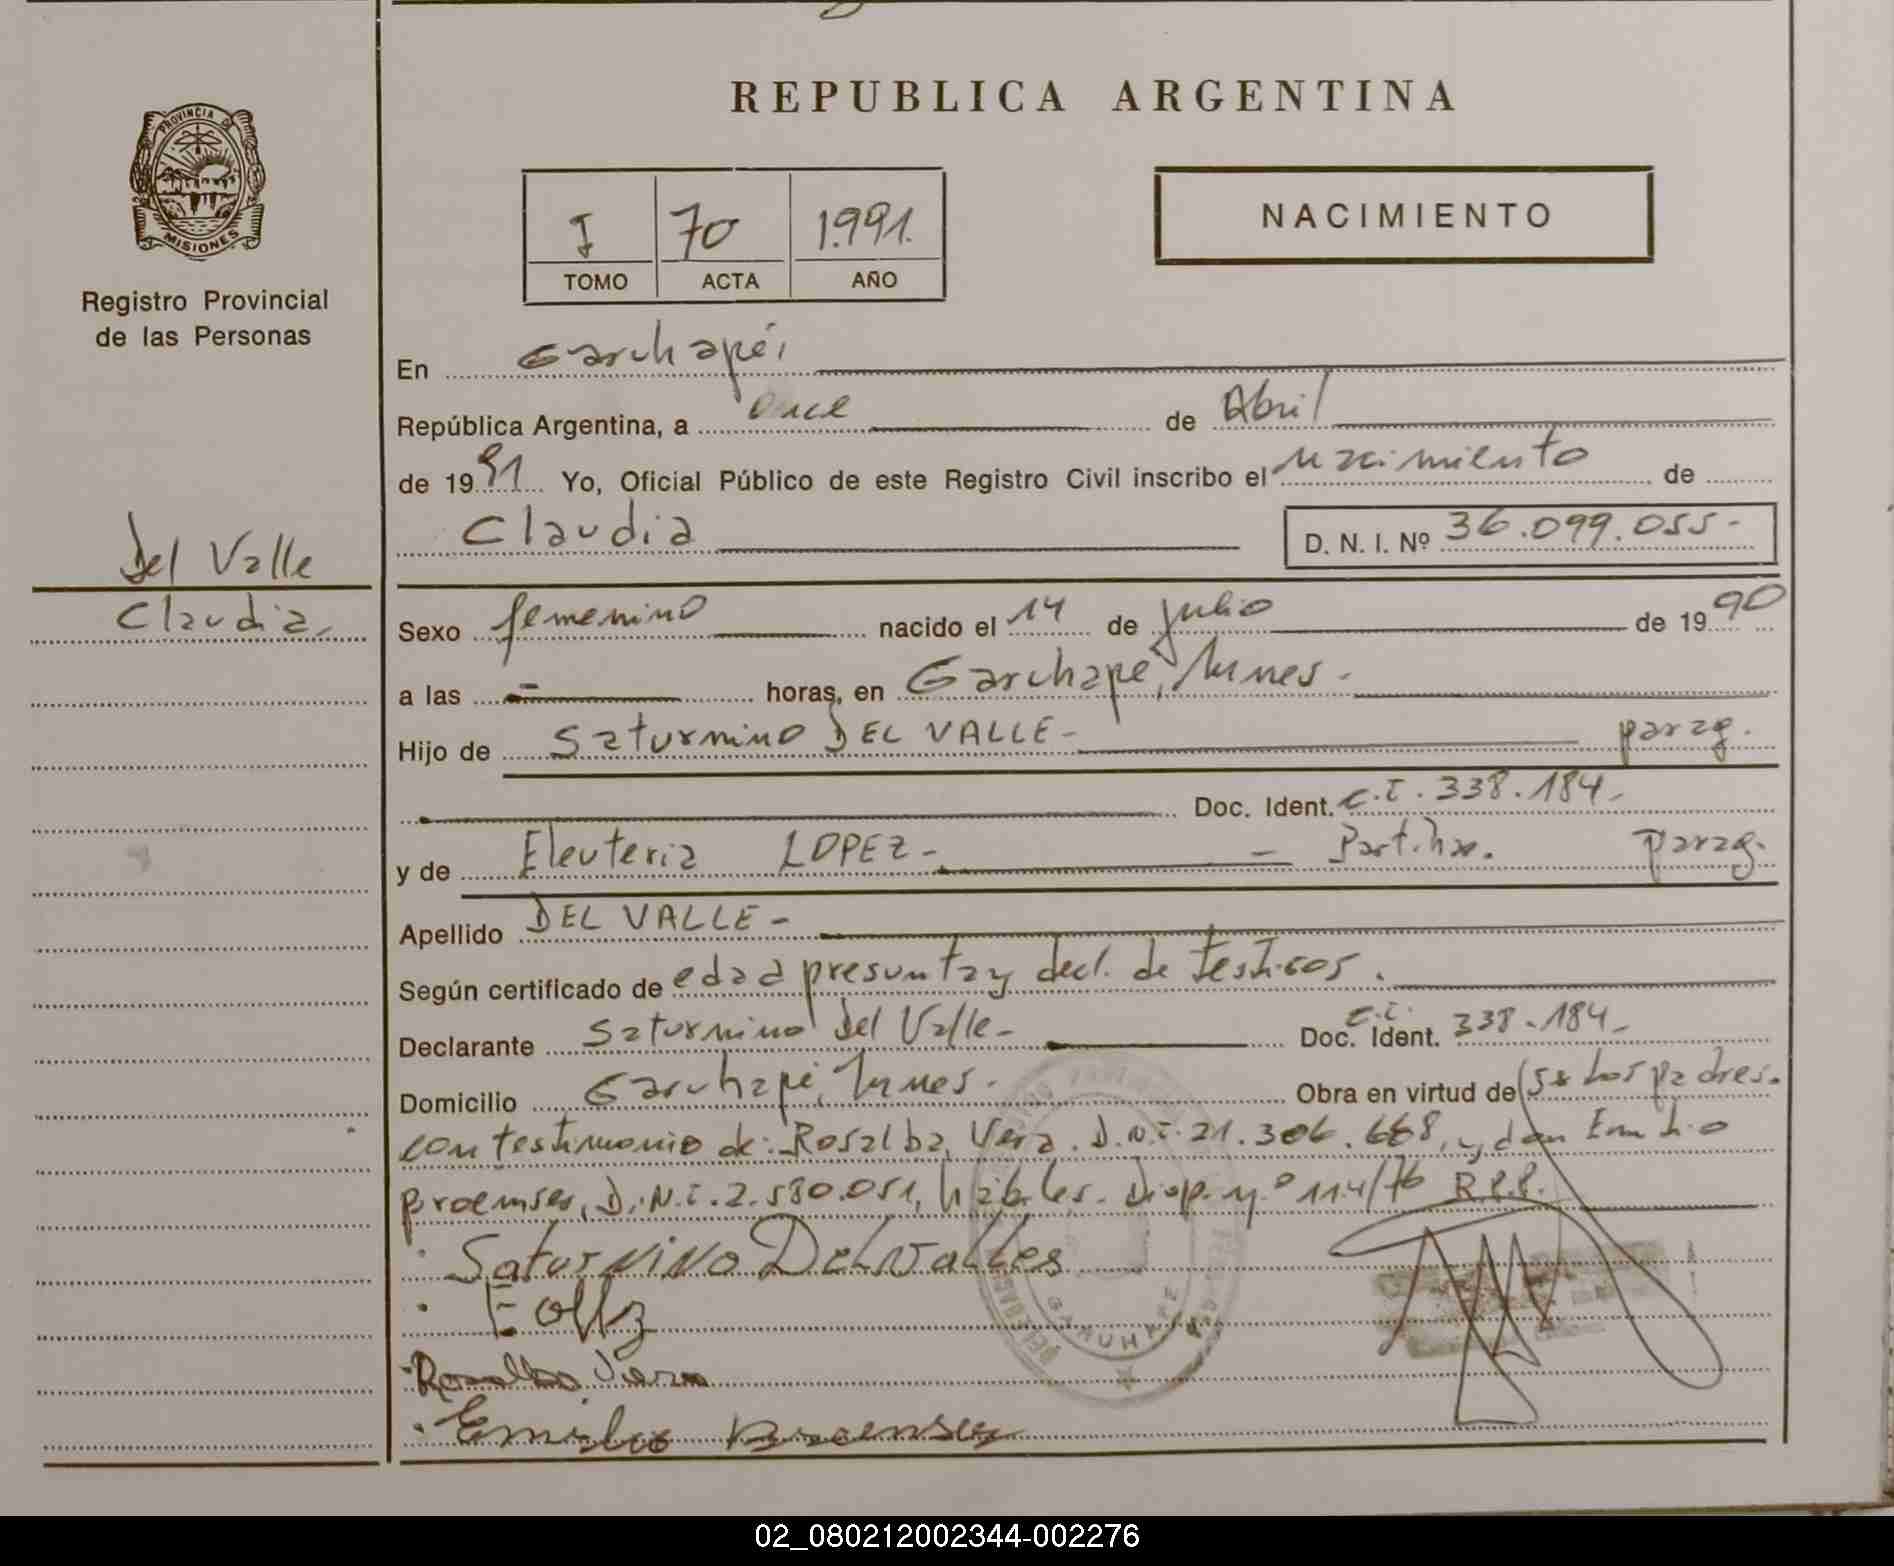 REPUBLICA ARGENTINA
PROVINCIA DE
MISIONES
Registro Provincial
de las Personas
I 70 1.991.
TOMO ACTA AÑO
NACIMIENTO
En Garuhapé,
República Argentina, a once de Abril
de 1991 Yo, Oficial Público de este Registro Civil inscribo el nacimiento de
Claudia D. N. I. Nº 36.099.055-
Del Valle
Claudia.
Sexo femenino nacido el 14 de julio de 1990
a las - horas, en Garuhape, Mnes.
Hijo de Saturnino DEL VALLE- parag.
Doc. Ident. C.I. 338.184-
y de Eleuteria LOPEZ- - Part. parag.
Apellido DEL VALLE-
Según certificado de edad presunta y decl. de testigos.
Declarante Saturnino del Valle- Doc. Ident. C.I. 338.184-
Domicilio Garuhapé, Mnes. Obra en virtud de ser los padres.
con testimonio de: Rosalba Vera. D.N.I. 21.306.668, y don Emilio
Proenses, D.N.I. 2.580.051, hábiles. Disp. n.º 114/76 R.P.P.
Saturnino Delvalles
Rosalba Viera
Emilio Proenses
GARUHAPE
02_080212002344-002276